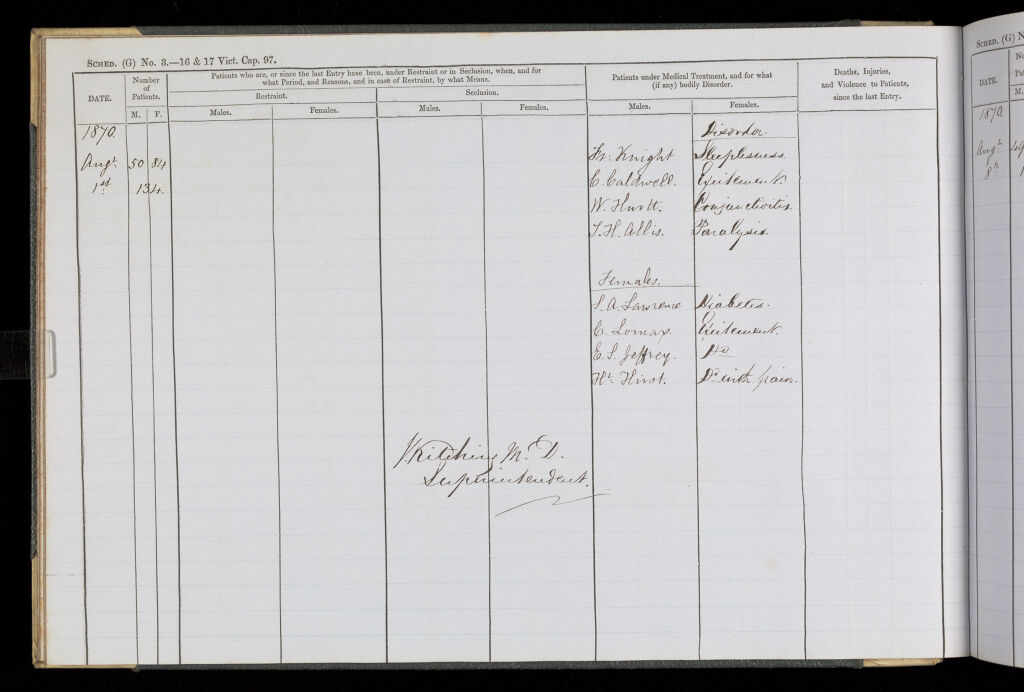 SCHED. (G) No. 3.—16 & 17 Vict. Cap. 97.
DATE.
Number of Patients.
M. F.
Patients who are, or since the last Entry have been, under Restraint or in Seclusion, when, and for
what Period, and Reasons, and in case of Restraint, by what Means.
Restraint.
Seclusion.
Males. Females. Males. Females.
Patients under Medical Treatment, and for what
(if any) bodily Disorder.
Males. Females.
Deaths, Injuries,
and Violence to Patients,
since the last Entry.
1870.
Disorder.
Augt 50 84 Fr. Knight Sleeplesness.
1st 134. C. Caldwell. Excitement.
W. Hurtt. Conjunctivitis.
J. H. Allis. Paralysis.
Females.
S. A. Lawrence Diabetes.
C. Lomax. Excitement.
E. S. Jeffrey. Do
Ht. Hirst. Do with pain.
Kitching M.D.
Superintendent.
SCHED. (G) N
DATE.
M.
1870.
Augt 49
8th